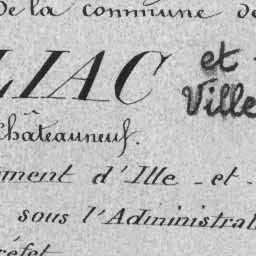 de la commune de
LIAC et
Ville
Châteauneuf.
ment d'Ille-et-
sous l'Administrat
réfet